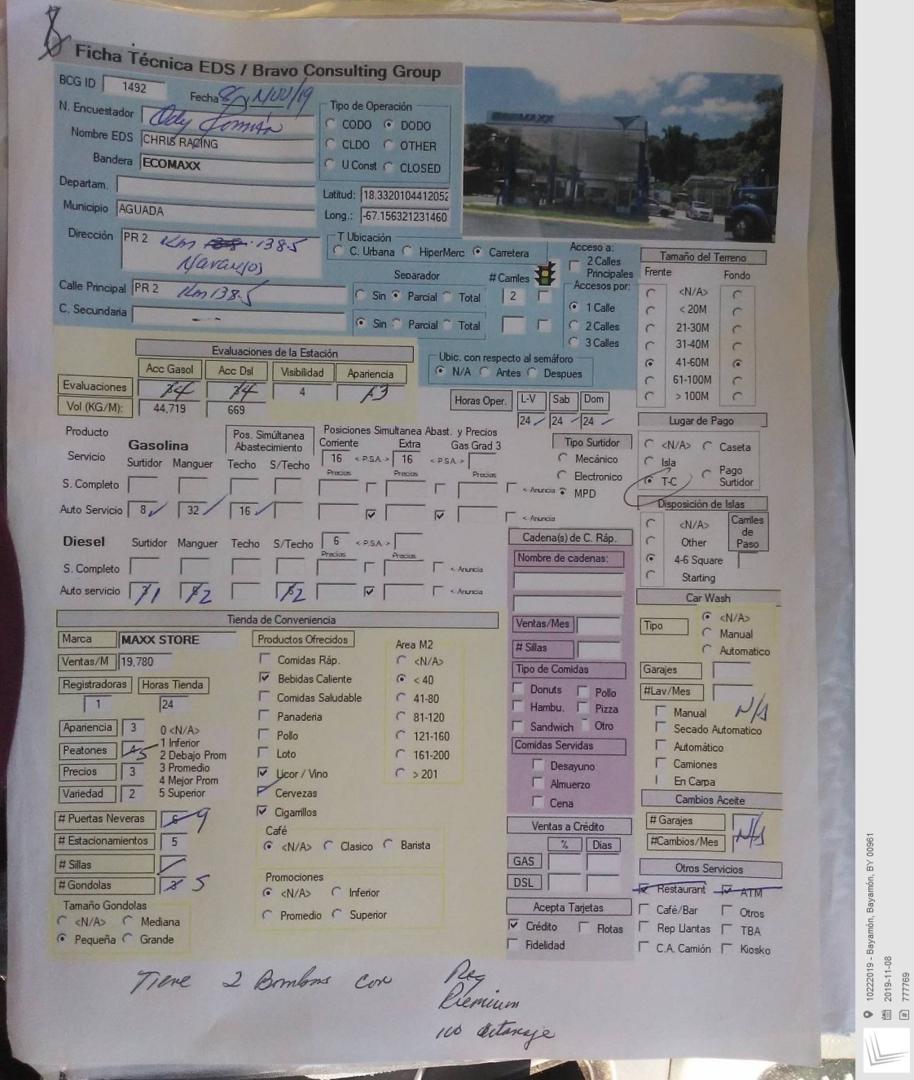 Ficha Técnica EDS / Bravo Consulting Group
BCG ID 1492
Fecha 8/Nov/19
N. Encuestador
Nombre EDS CHRIS RACING
Bandera ECOMAXX
Departam.
Municipio AGUADA
Dirección PR 2 Km 138.5
Naranjos
Calle Principal PR 2 Km 138.5
C. Secundaria —
Tipo de Operación
CODO DODO
CLDO OTHER
U Const CLOSED
Latitud: 18.3320104412052
Long.: -67.156321231460
ECOMAXX
T Ubicación
C. Urbana HiperMerc Carretera
Separador # Carriles
Sin Parcial Total 2
Sin Parcial Total
Acceso a:
2 Calles
Principales
Accesos por:
1 Calle
2 Calles
3 Calles
Ubic. con respecto al semáforo
N/A Antes Despues
Tamaño del Terreno
Frente Fondo
<N/A>
< 20M
21-30M
31-40M
41-60M
61-100M
> 100M
Evaluaciones de la Estación
Acc Gasol Acc Dsl Visibilidad Apariencia
Evaluaciones 4 4 4 3
Vol (KG/M): 44,719 669
Horas Oper. L-V Sab Dom
24 24 24
Lugar de Pago
<N/A> Caseta
Isla
T-C Pago
Surtidor
Producto
Servicio
Gasolina
Surtidor Manguer
Pos. Simúltanea
Abastecimiento
Techo S/Techo
Posiciones Simultanea Abast. y Precios
Corriente Extra Gas Grad 3
16 < P.S.A. > 16 < P.S.A. >
Precios Precios Precios
S. Completo < Anuncia
Auto Servicio 8 32 16 < Anuncia
Tipo Surtidor
Mecánico
Electronico
MPD
Disposición de Islas
<N/A>
Other
4-6 Square
Starting
Carriles
de
Paso
Diesel Surtidor Manguer Techo S/Techo 6 < P.S.A. >
Precios Precios
S. Completo < Anuncia
Auto servicio 1 2 2 < Anuncia
Cadena(s) de C. Ráp.
Nombre de cadenas:
Ventas/Mes
# Sillas
Tipo de Comidas
Donuts Pollo
Hambu. Pizza
Sandwich Otro
Comidas Servidas
Desayuno
Almuerzo
Cena
Car Wash
Tipo <N/A>
Manual
Automatico
Garajes
#Lav/Mes
N/A
Manual
Secado Automatico
Automático
Camiones
En Carpa
Tienda de Conveniencia
Marca MAXX STORE
Ventas/M 19,780
Registradoras Horas Tienda
1 24
Apariencia 3
Peatones 5
Precios 3
Variedad 2
0 <N/A>
1 Inferior
2 Debajo Prom
3 Promedio
4 Mejor Prom
5 Superior
# Puertas Neveras 9
# Estacionamientos 5
# Sillas
# Gondolas 5
Tamaño Gondolas
<N/A> Mediana
Pequeña Grande
Productos Ofrecidos
Comidas Ráp.
Bebidas Caliente
Comidas Saludable
Panaderia
Pollo
Loto
Licor / Vino
Cervezas
Cigarrillos
Area M2
<N/A>
< 40
41-80
81-120
121-160
161-200
> 201
Café
<N/A> Clasico Barista
Promociones
<N/A> Inferior
Promedio Superior
Ventas a Crédito
% Dias
GAS
DSL
Acepta Tarjetas
Crédito Flotas
Fidelidad
Cambios Aceite
# Garajes
#Cambios/Mes
N/A
Otros Servicios
Restaurant ATM
Café/Bar Otros
Rep Llantas TBA
C.A. Camión Kiosko
Tiene 2 Bombas con Reg
Premium
100 octanaje
10222019 - Bayamón, Bayamón, BY 00961
2019-11-08
777769